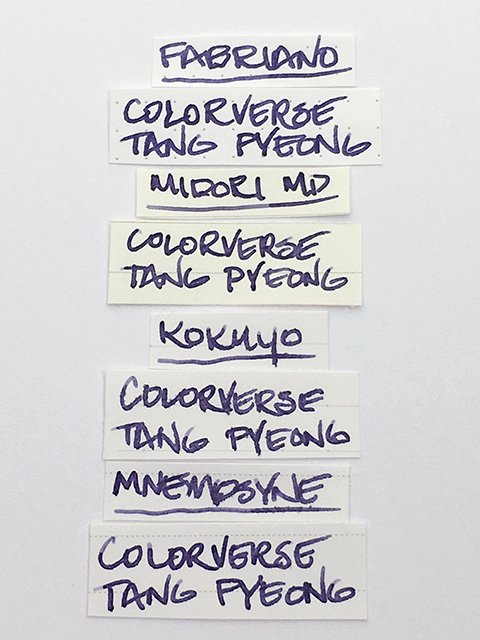 FABRIANO
COLORVERSE
TANG PYEONG
MIDORI MD
COLORVERSE
TANG PYEONG
KOKUYO
COLORVERSE
TANG PYEONG
MNEMOSYNE
COLORVERSE
TANG PYEONG